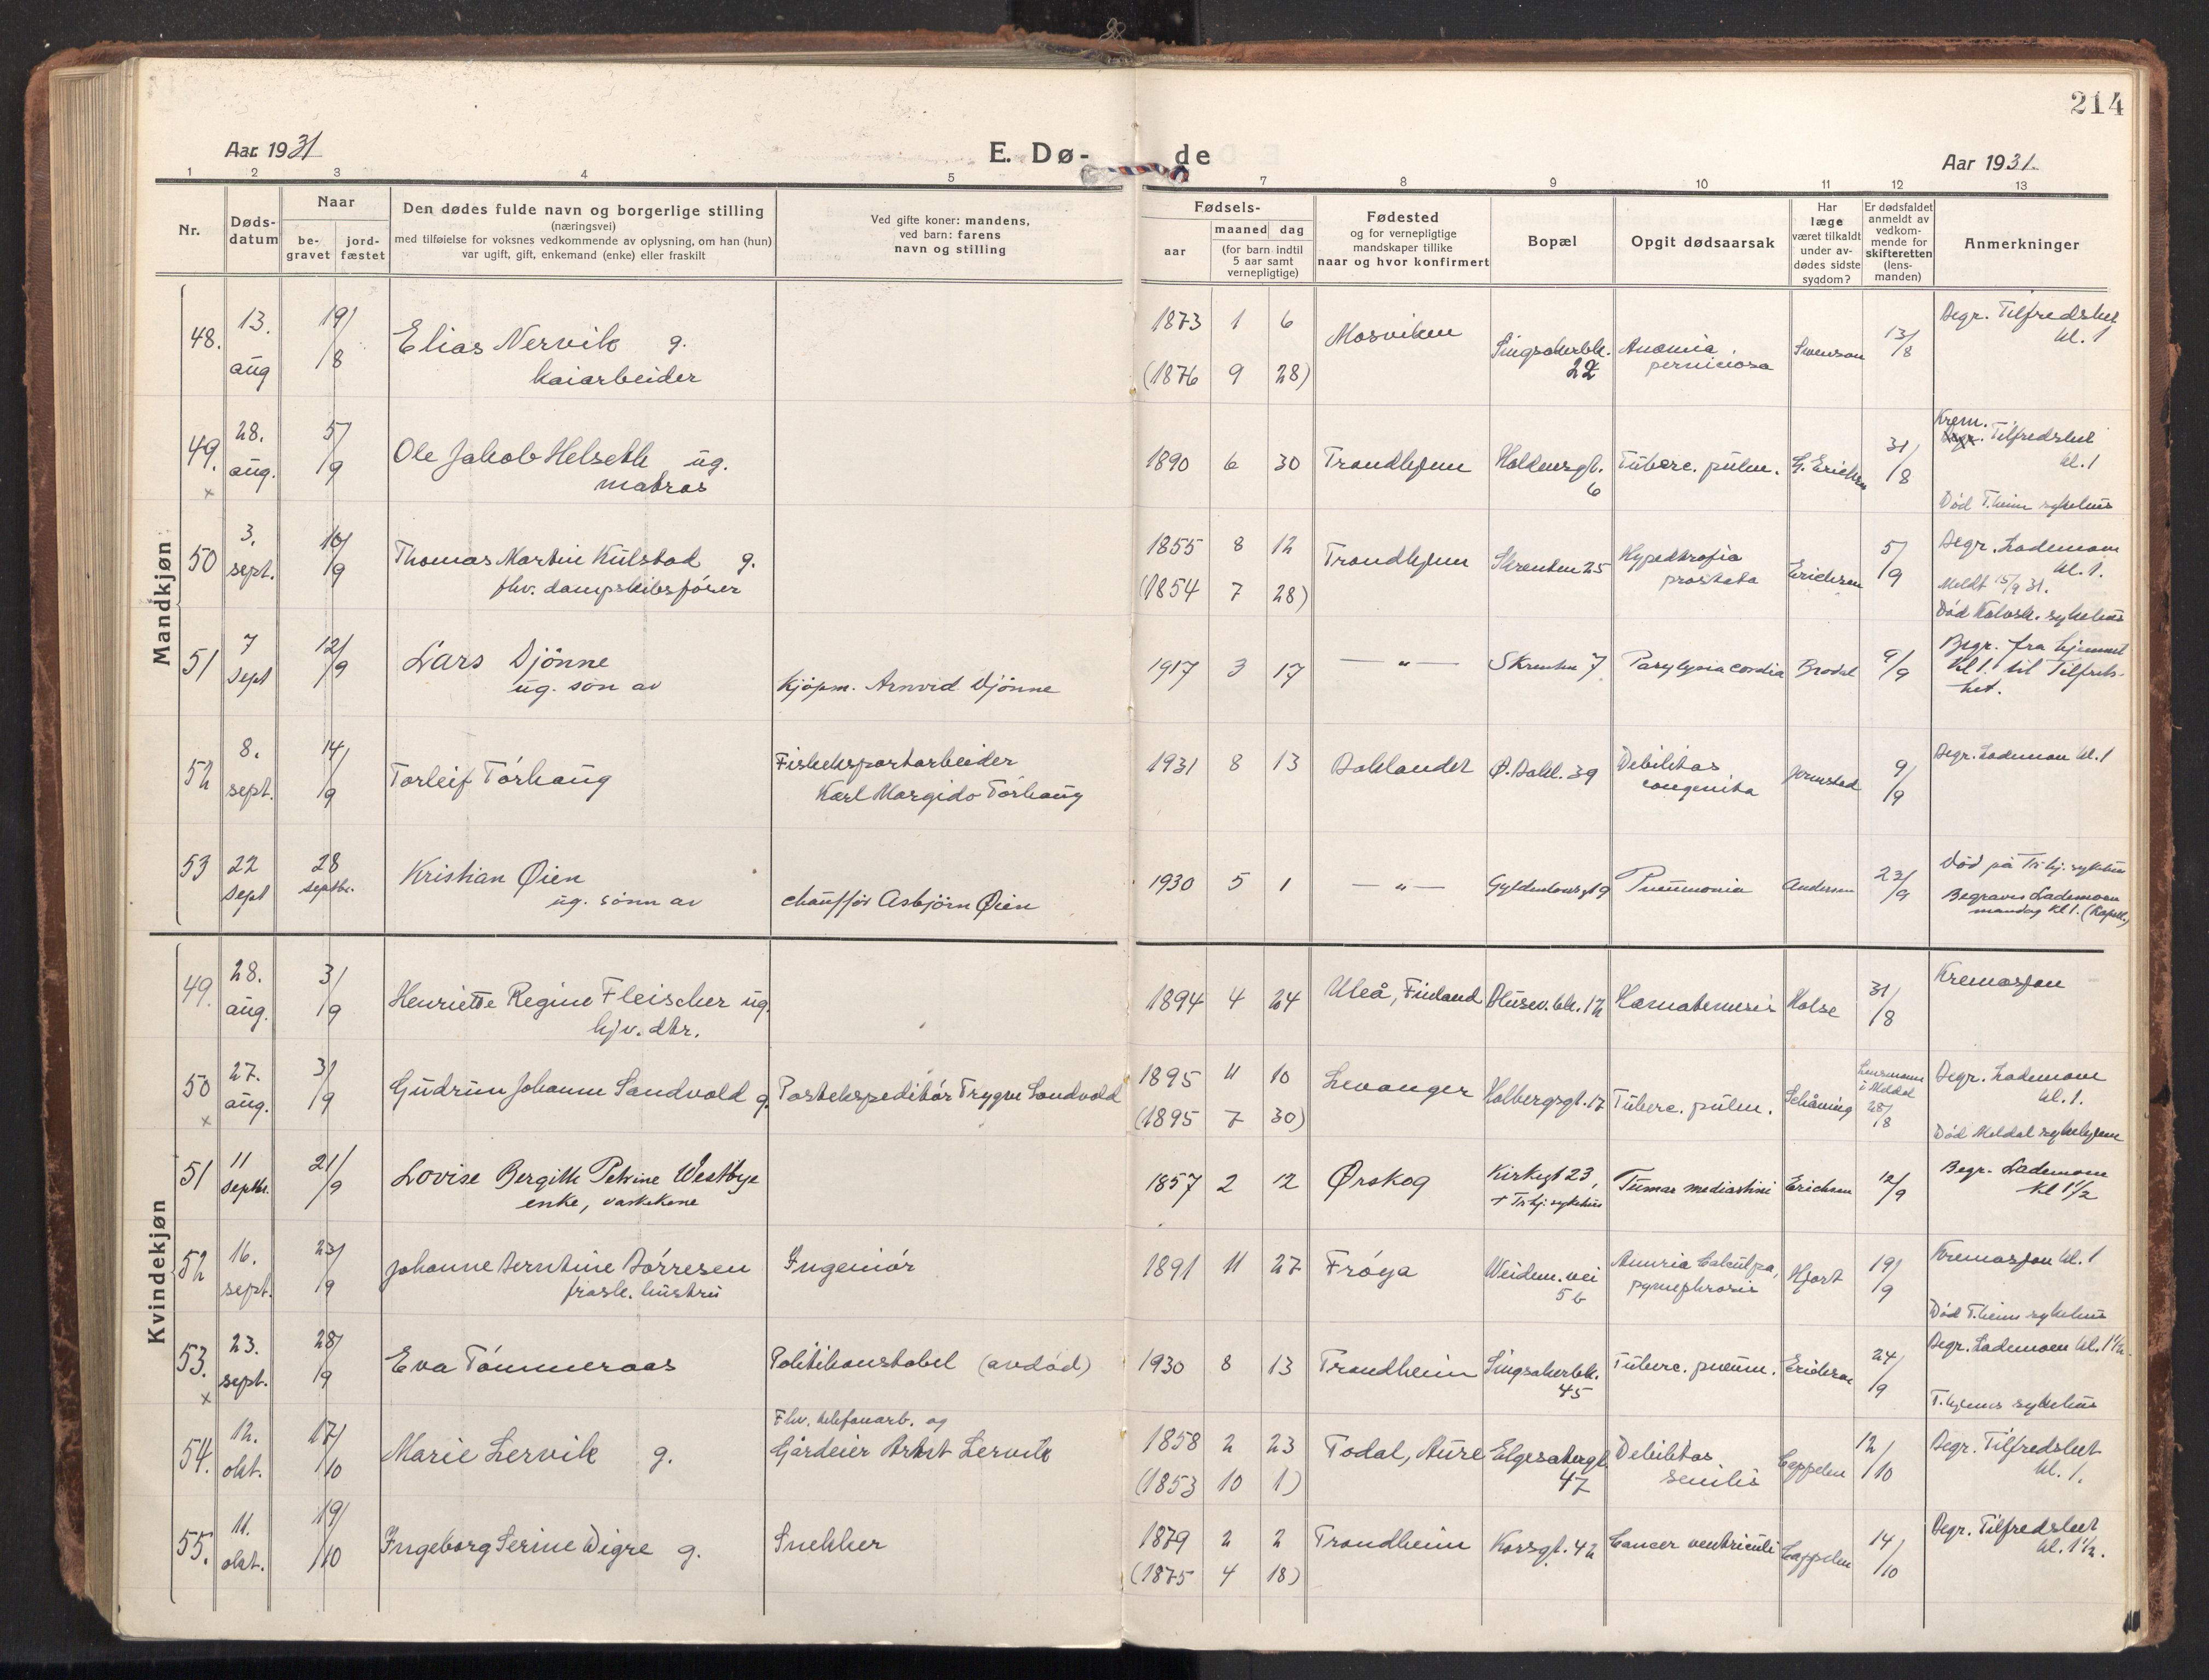 214
Aar 1931
E. Dø- de
Aar 1931.
1 2 3 4 5 7 8 9 10 11 12 13
Nr.
Døds-
datum
Naar
be-
gravet
jord-
fæstet
Den dødes fulde navn og borgerlige stilling
(næringsvei)
med tilføielse for voksnes vedkommende av oplysning, om han (hun)
var ugift, gift, enkemand (enke) eller fraskilt
Ved gifte koner: mandens,
ved barn: farens
navn og stilling
Fødsels-
aar
maaned dag
(for barn indtil
5 aar samt
vernepligtige)
Fødested
og for vernepligtige
mandskaper tillike
naar og hvor konfirmert
Bopæl
Opgit dødsaarsak
Har
læge
været tilkaldt
under av-
dødes sidste
sygdom?
Er dødsfaldet
anmeldt av
vedkom-
mende for
skifteretten
(lens-
manden)
Anmerkninger
Mandkjøn
48. 13. aug 19/8 Elias Nervik g. 1873 1 6 Mosviken Singsakerbk. 22 Anæmia perniciosa Svenson 13/8 Begr. Tilfredshet kl. 1
kaiarbeider (1876 9 28)
49. x 28. aug. 5/9 Ole Jakob Helseth ug. 1890 6 30 Trondhjem 6 Tuberc. pulm. G. Erichsen 31/8 Krem. Tilfredshet kl. 1
matros Død T.heim sykehus
50 3. sept. 10/9 Thomas Martin Kulstad g. 1855 8 12 Trondhjem Skrenten 25 Hypertrofia prostata Erichsen 5/9 Begr. Lademoen kl. 1.
fhv. dampskibsfører (1854 7 28) Meldt 15/9 31.
Død Katolsk. sykehus
51 7 Sept 12/9 Lars Djönne 1917 3 17 — " — Skrenten 7 Paralysia cordia Brodal 9/9 Begr. fra hjemmet
ug. sön av Kjöpm. Arnvid Djönne kl 1. til Tilfreds-
het.
52 8. sept. 14/9 Torleif Tórhaug Fiskeksportarbeider 1931 8 13 Baklandet Ø. Bakl. 39 Debilitas congenita Jermstad 9/9 Begr. Lademoen kl. 1
Karl Margido Tórhaug
53 22 Sept 28 Septbr. Kristian Øien 1930 5 1 — " — Gyldenløvesgt 9 Pneumonia Andersen 23/9 Død på Tr.hj. sykehus
ug. sönn av chaufför Asbjörn Øien Begraves Lademoen
mandag kl 1. (Kapell.)
Kvindekjøn
49. 28. aug. 3/9 Henriette Regine Fleischer ug. 1894 4 24 Uleå, Finland 12 Hæmatemesis Holse 31/8 Kremasjon
hjv. dtr.
50 x 27. aug. 3/9 Gudrun Johanne Sandvold g. Postekspeditór Trygve Sandvold 1895 11 10 Levanger Holbergsgt. 17 Tuberc. pulm. Schåning Lensmann i Meldal 28/8 Begr. Lademoen kl. 1.
(1895 7 30) Død Meldal sykehjem
51 11 Septbr. 21/9 Lovise Bergitte Petrine Westbye 1857 2 12 Ørskog Kirkegt 23, Tumor mediastini Erichsen 12/9 Begr. Lademoen
enke, vaskekone + Tr.hj. sykehus kl 1½
52 16. sept. 23/9 Johanne Berntine Bórresen Ingeniór 1891 11 27 Fróya Weidem. vei 5b Anuria Calculosa, pyonephrosis Hjort 19/9 Kremasjon kl. 1
frask. hustru Død T.heim sykehus
53. x 23. sept. 28/9 Eva Tómmeraas Politikonstabel (avdód) 1930 8 13 Trondheim Singsakerbk. 45 Tuberc. pneum. Erichsen 24/9 Begr. Lademoen kl. 1½.
T.hjems sykehus
54. 12. okt. 17/10 Marie Lervik g. Fhv. telefonarb. og 1858 2 23 Todal, Aure Elgesætergt. 47 Debilitas senilis Cappelen 12/10 Begr. Tilfredshet kl. 1.
Gårdeier Lervik (1853 10 1)
55. 11. okt. 19/10 Ingeborg Serine Digre g. Snekker 1879 2 2 Trondheim Korsgt. 42 Cancer ventriculi Cappelen 14/10 Begr. Tilfredshet kl. 1½.
(1875 4 18)